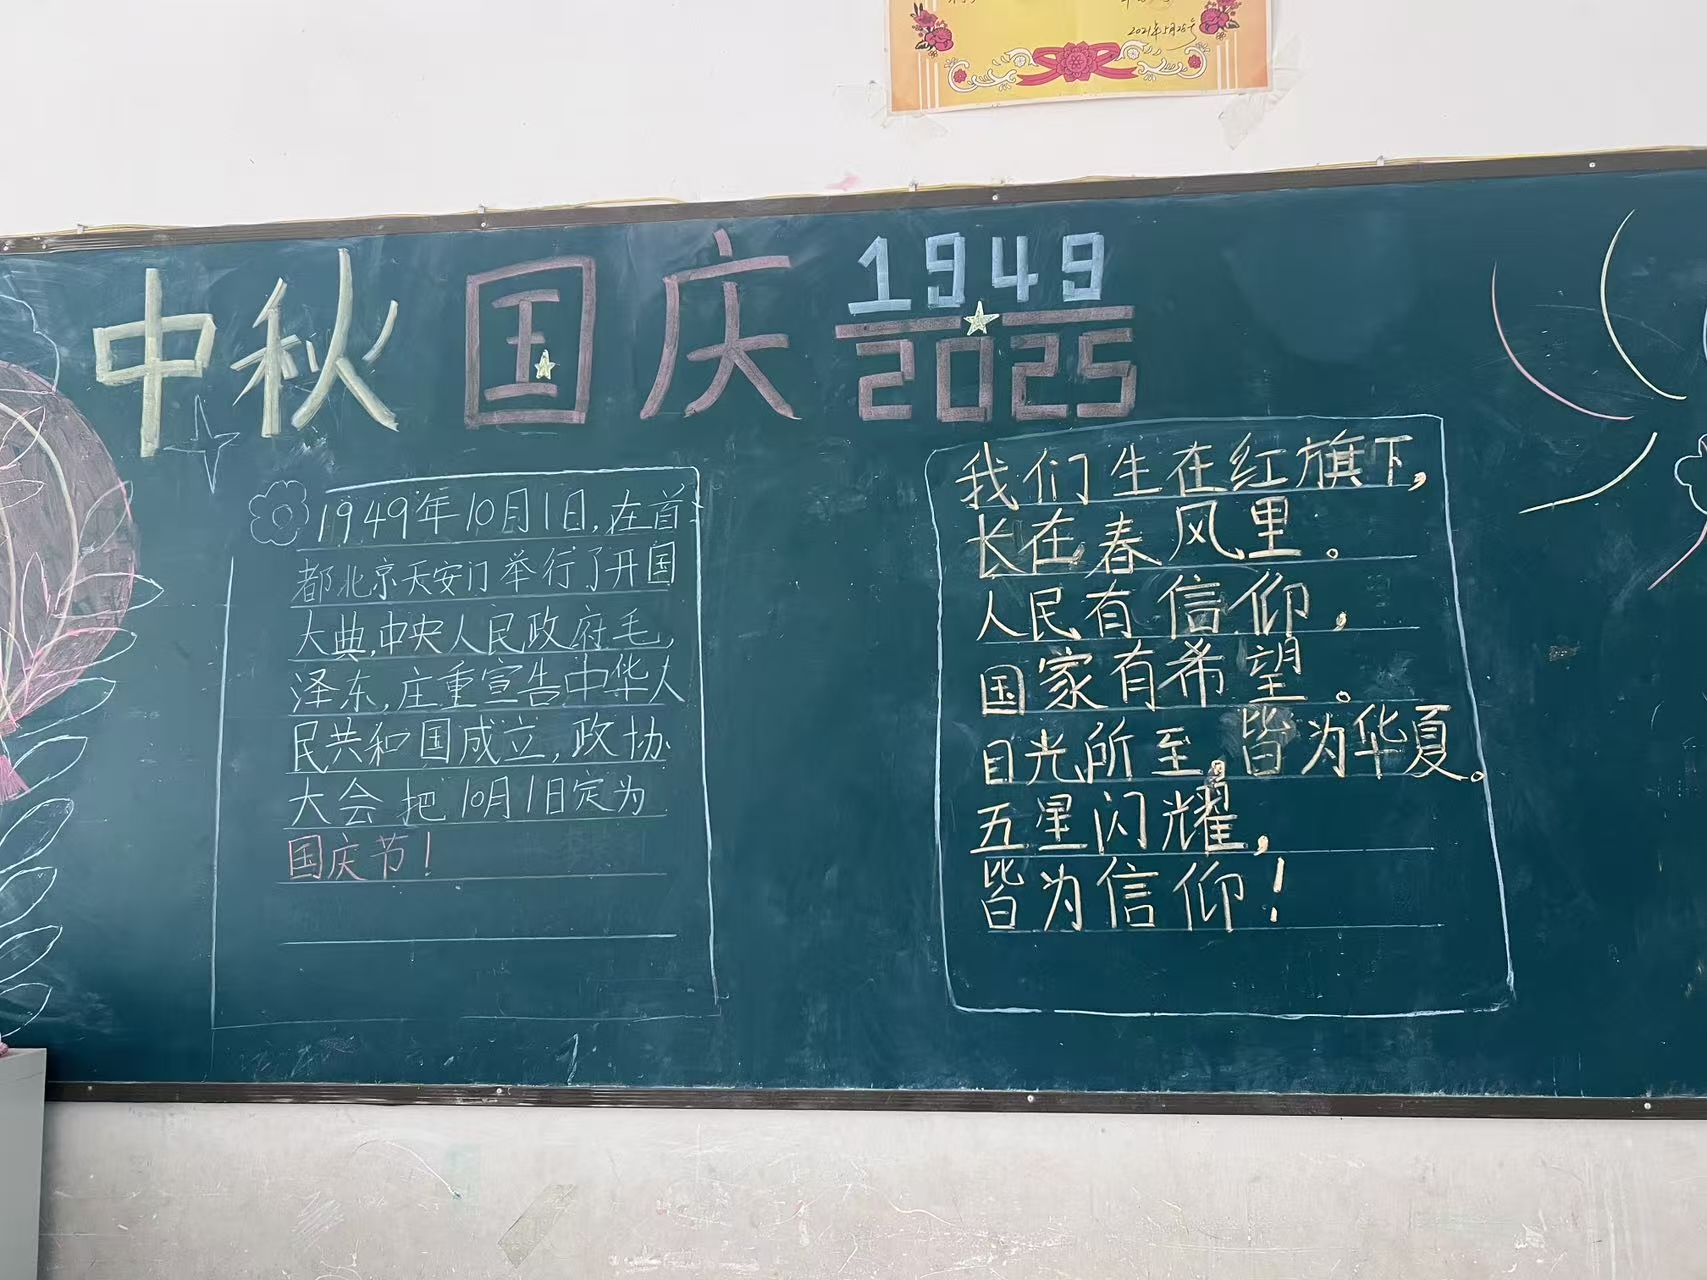 2021年5月28号
中秋国庆
1949
2025
1949年10月1日,在首
都北京天安门举行了开国
大典,中央人民政府毛,
泽东,庄重宣告中华人
民共和国成立,政协
大会把10月1日定为
国庆节!
我们生在红旗下,
长在春风里。
人民有信仰,
国家有希望。
目光所至,皆为华夏。
五星闪耀,
皆为信仰!